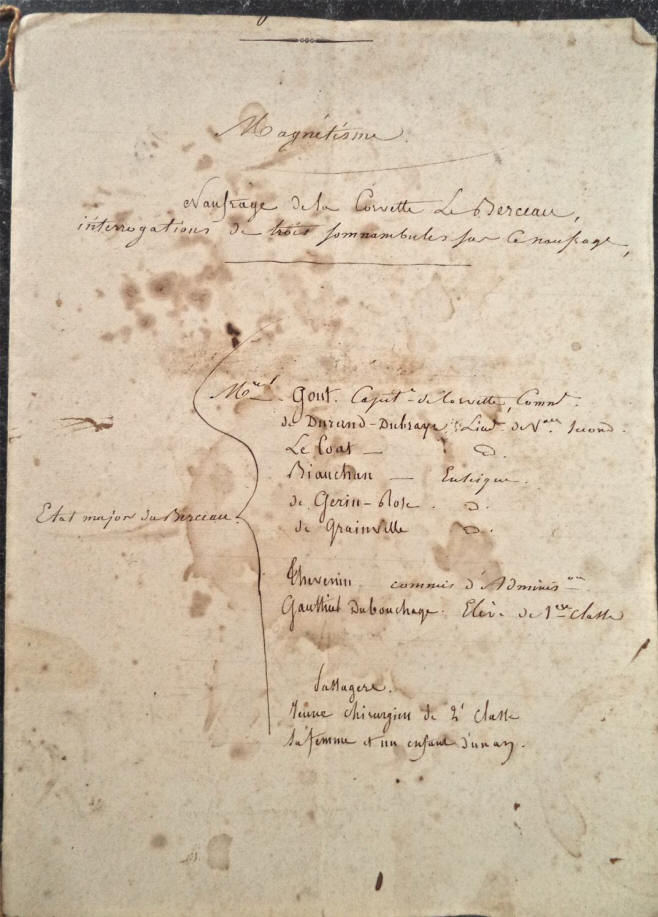 Magnétisme.
Naufrage de la Corvette Le Berceau,
interrogations de trois somnambules sur ce naufrage,
Mrs Gout. Capit. de Corvette, Commt.
de Durand-Dubraye, Lieut. de Veau second.
Le Coat — d°.
Bianchan — Enseigne.
de Gerin-Rose d°.
Etat major du Berceau. de Grainville d°.
Thevenin commis d'Adminis on
Gaultier Dubouchage. Elève de 1ere Classe
Passagers.
Jeune chirurgien de 2e Classe
sa femme et un enfant d'un an.